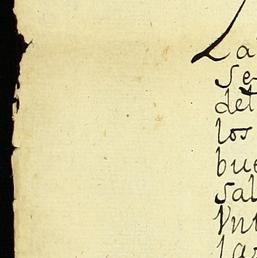 La
se
det
los
bue
sal
Vnt
lar